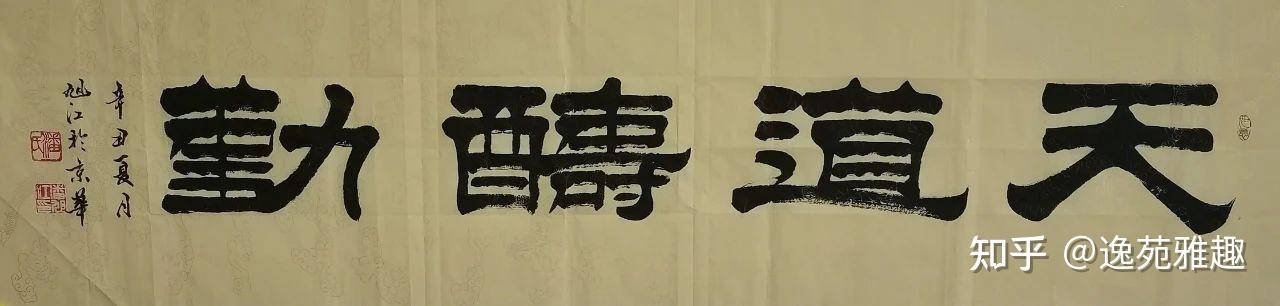 天道醻勤
辛丑夏月
旭江於京華
潘氏
知乎 @逸苑雅趣